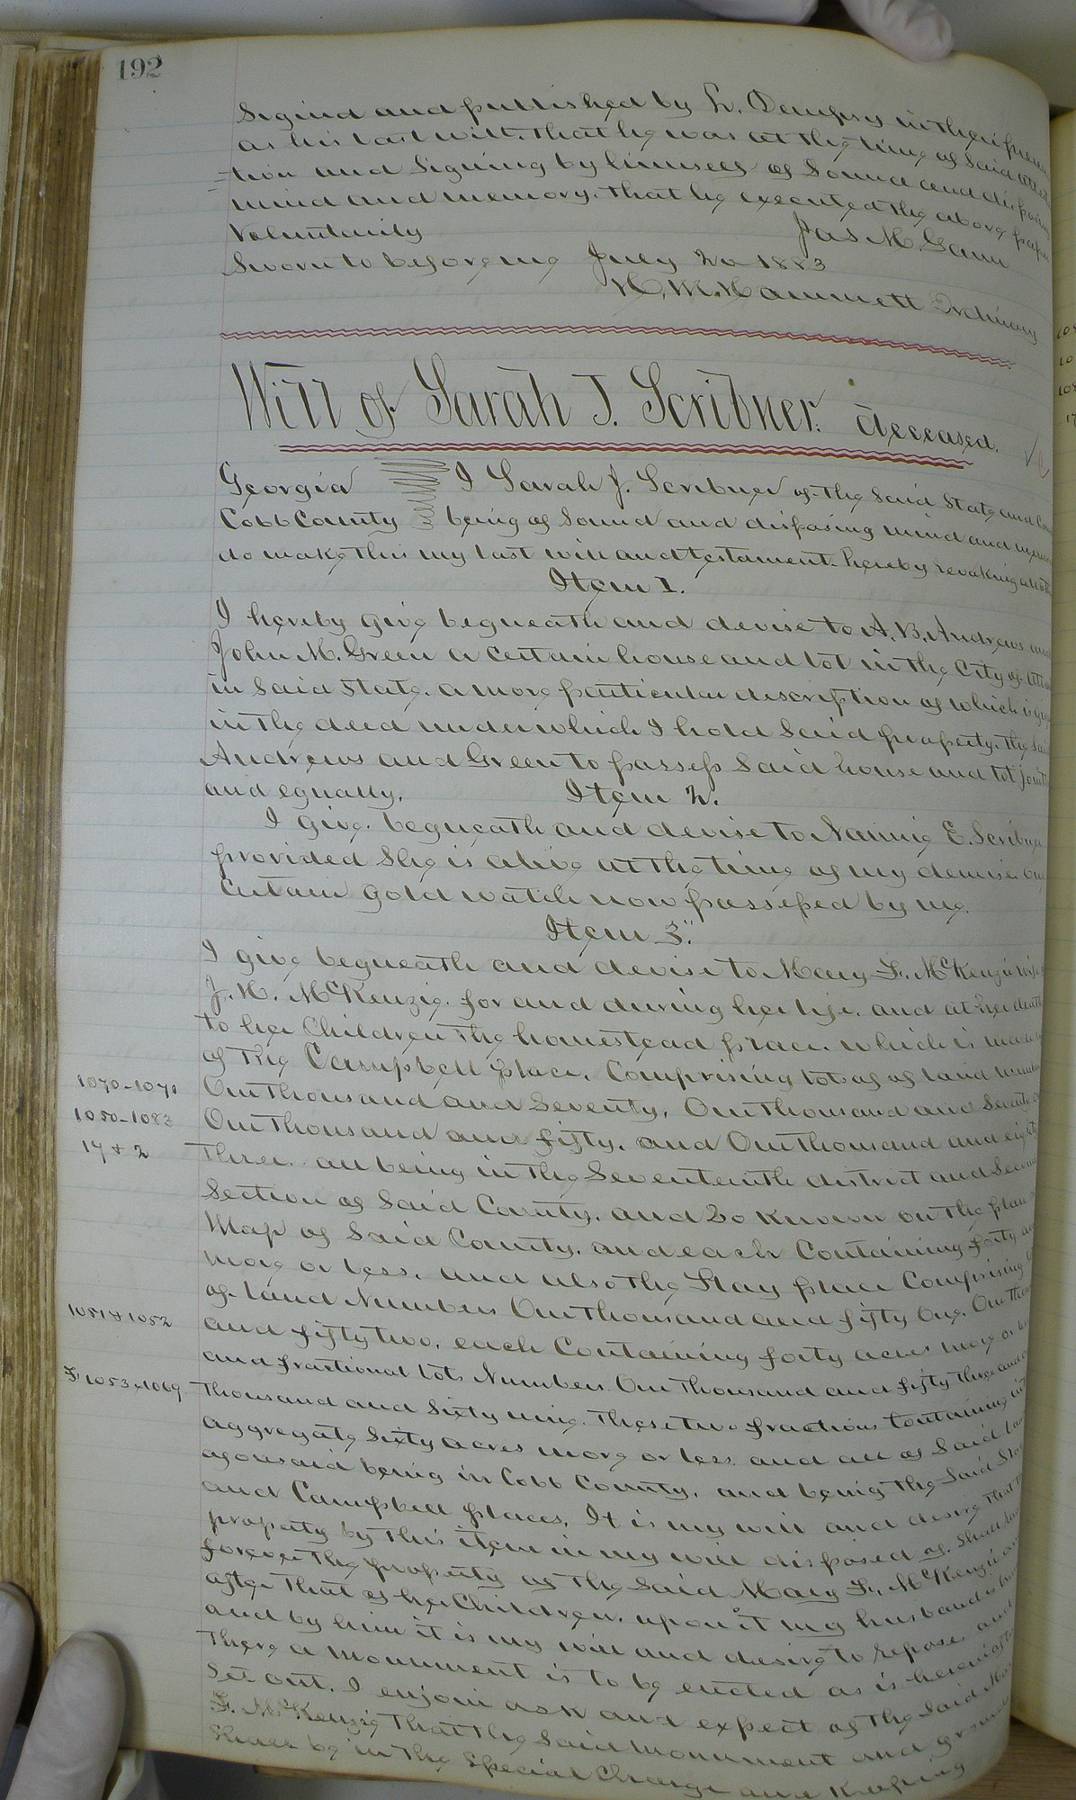 192
Signed and published by L. Dempsy in their
as his last will. That he was at the time of said
tion and signing by himself of Sound and disposing
mind and memory. That he executed the above
Voluntarily Jas M. Gann
Sworn to before me July 20 1883
H. M. Hammett Ordinary
Will of Sarah J. Scribner. deceased.
Georgia I Sarah J. Scribner of the Said State and
Cobb County being of Sound and disposing mind and
do make this my last will and testament. hereby revoking all
Item 1.
I hereby give bequeath and devise to A. B. Andrews and
John M. Green a certain house and lot in the City of
in Said State. a more particular description of which is
in the deed under which I hold Said property. the Said
Andrews and Green to possess Said house and lot
and equally. Item 2.
I give. bequeath and devise to Nannie E. Scribner
provided She is alive at the time of my demise
certain gold watch now possessed by me.
Item 3."
I give bequeath and devise to Mary F. McKenzie wife
J. H. McKenzie. for and during her life. and at her death
to her Children The homestead place. which is
of The Campbell place. Comprising lots of of land
1070-1071 One Thousand and Seventy, One Thousand and
1050-1083 One Thousand and fifty. and One Thousand and
17 & 2 Three. all being in the Seventeenth district and
Section of Said County. and So Known on the plan
Map of Said County. and each Containing forty
more or less. and also the Slay place Comprising
of land Numbers One Thousand and fifty One.
1051 & 1052 and fifty two, each Containing forty acres more or
and fractional lots Numbers One Thousand and fifty three and
F. 1053 & 1069 Thousand and Sixty nine. These two fractions Containing in
aggregate Sixty acres more or less and all of Said
aforesaid being in Cobb County. and being the Said
and Campbell places. It is my will and desire that
property by this item in my will disposed of. Shall
forever the property of the Said Mary F. McKenzie
after That of her Children. upon it my husband is
and by him it is my will and desire to repose. and
There a monument is to be erected as is hereinafter
Set out. I enjoin ask and expect of the Said
F. McKenzie That the Said monument and
be in The Special Charge and Keeping